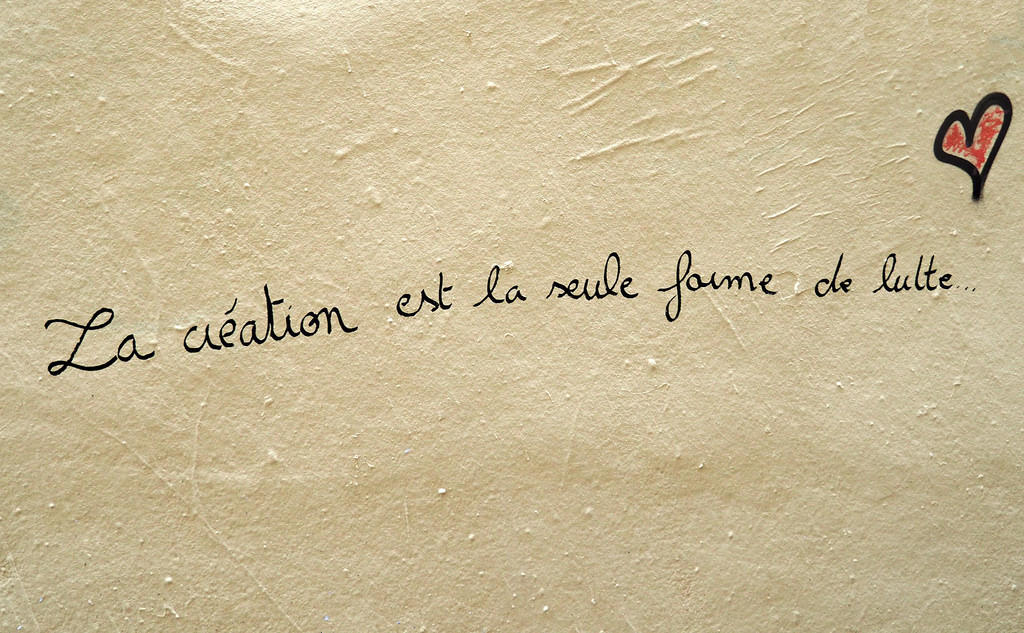 La création est la seule forme de lutte...